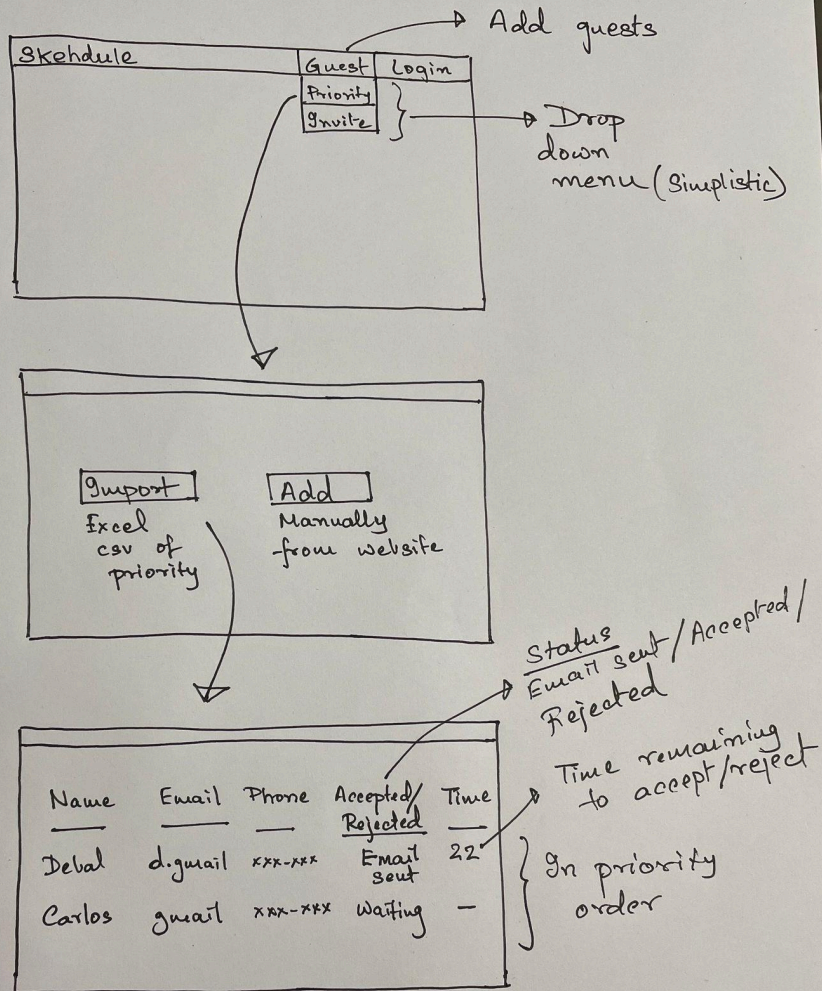 Add guests
Skehdule
Guest
Login
Priority
Invite
Drop
down
menu (Simplistic)
Import
Excel
csv of
priority
Add
Manually
from website
Status
Email sent/Accepted/
Rejected
Time remaining
to accept/reject
Name Email Phone Accepted/ Time
Rejected
Debal d.gmail xxx-xxx Email 22
sent
Carlos gmail xxx-xxx Waiting —
In priority
order